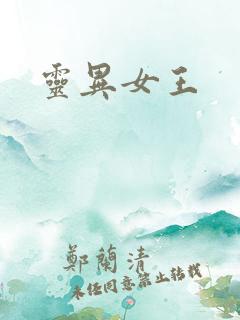 靈異女王
鄭蘭清
未经同意禁止转载